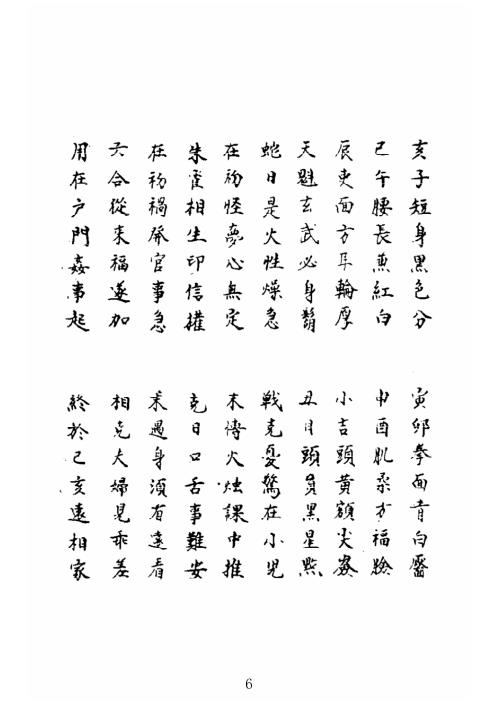 亥子短身黑色分
寅卯拳面青白靨
巳午腰長魚紅白
申酉肌柔方福臉
辰吏面方耳輪厚
小吉頭黃額尖
天魁玄武必身鬍
丑月頭員黑星㸃
蛇日是火性燥急
戰克憂驚在小児
在初怪夢心無定
末傳火燭課中推
朱雀相生印信權
克日口舌事難安
在初禍發官事急
末遇身須有遠看
六合從來福遂加
相克夫婦見乖差
用在户門姦事起
終於已亥遠相家
6